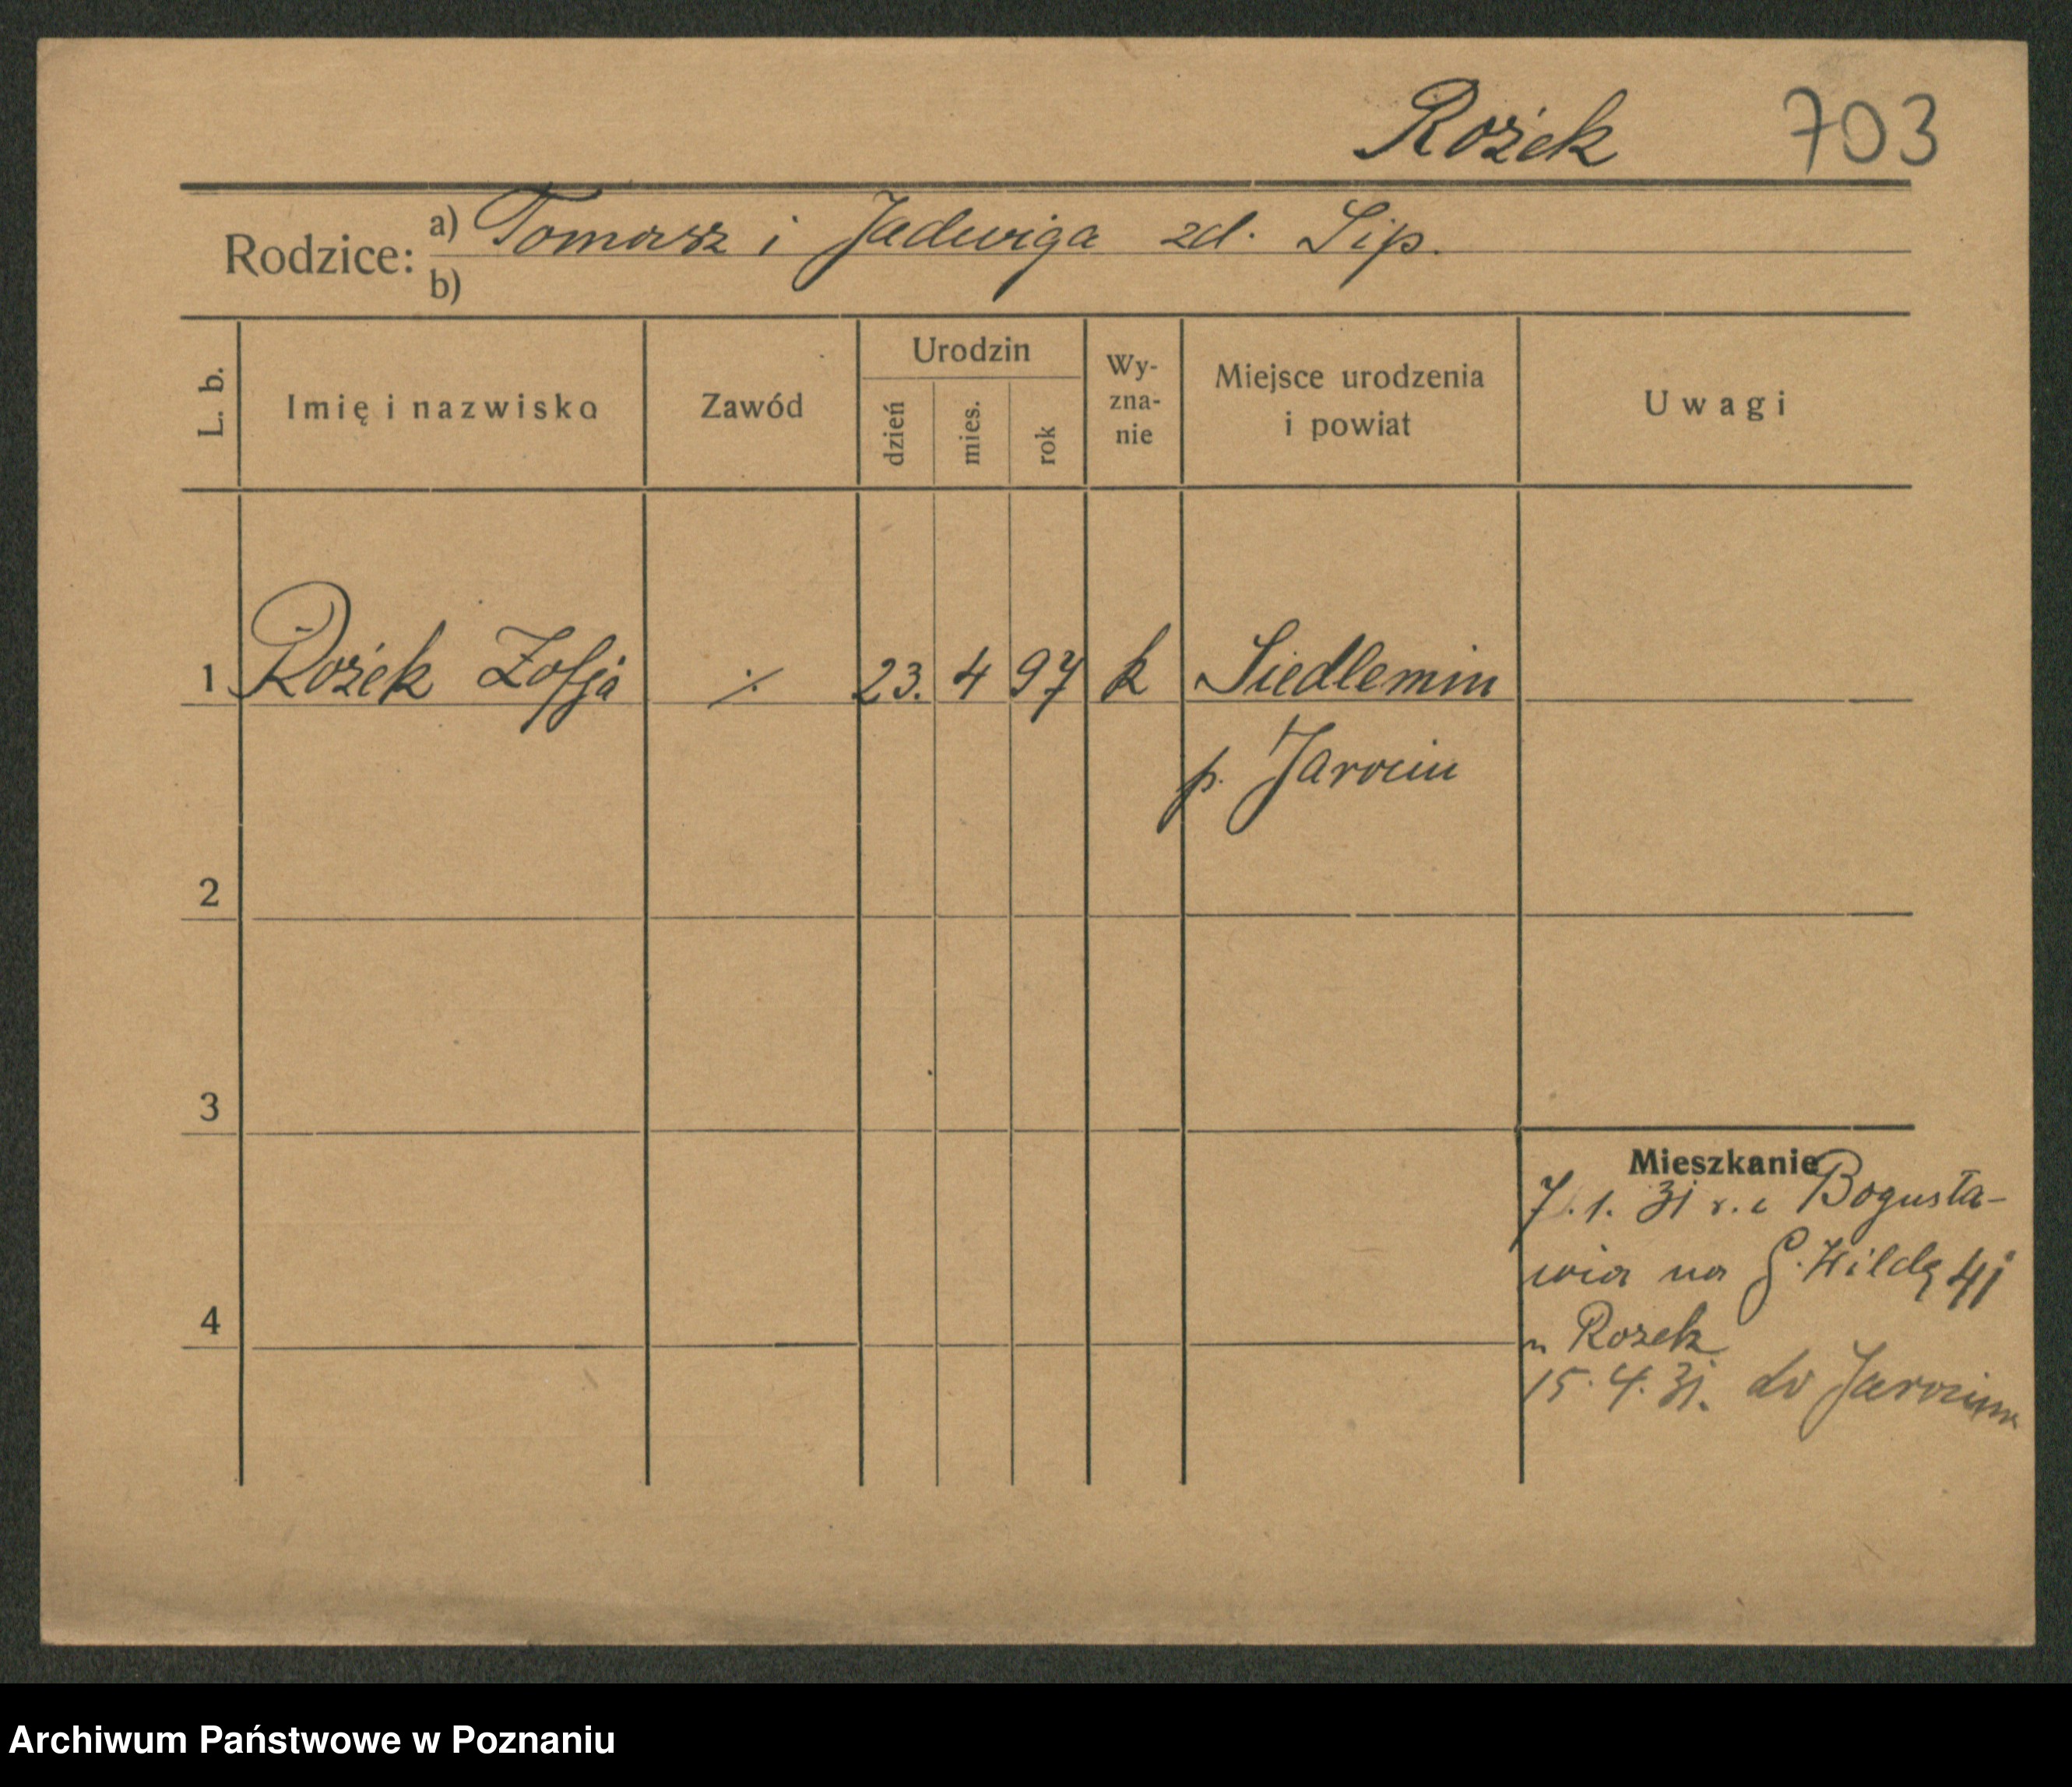 Rożek 703
Rodzice: a) Tomasz i Jadwiga zd. Lip.
b)
L. b. Imię i nazwisko Zawód Urodzin dzień mies. rok Wy-zna-nie Miejsce urodzenia i powiat Uwagi
1 Rożek Zofja ⁒ 23. 4 97 k Siedlemin
p. Jarocin
2
3
Mieszkanie
7.1.31 r. z Bogusła-
wia na G. Wildę 41
4
u Rożek
15.4.31. do Jarocina
Archiwum Państwowe w Poznaniu